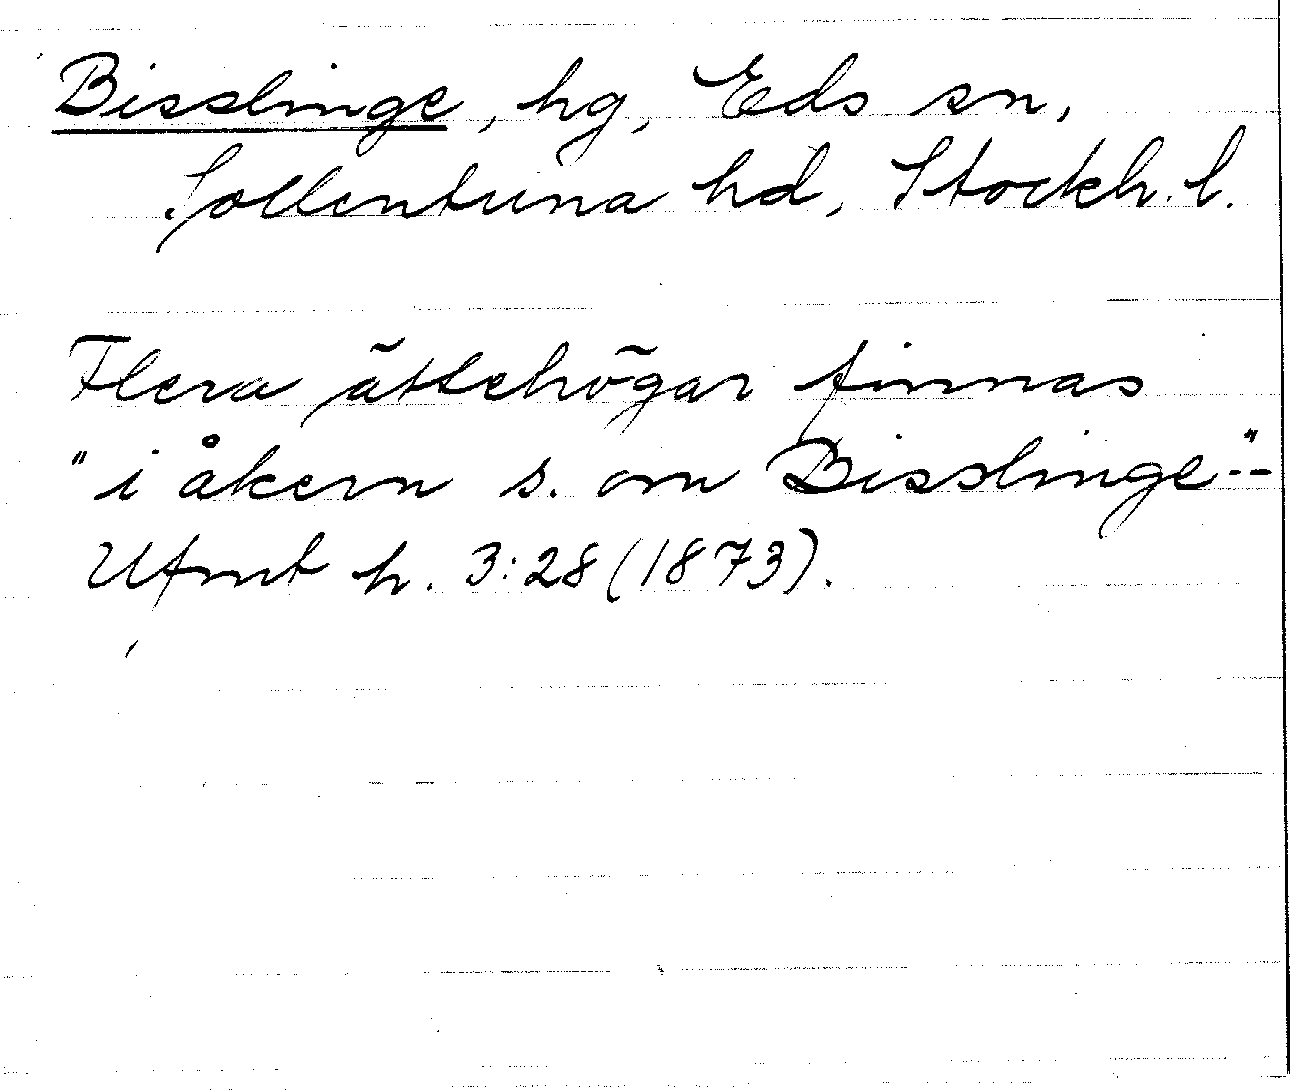 Bisslinge, hg, Eds sn,
Sollentuna hd, Stockh. l.
Flera ättehögar finnas
"i åkern s. om Bisslinge"--
Ufmt h. 3:28 (1873).